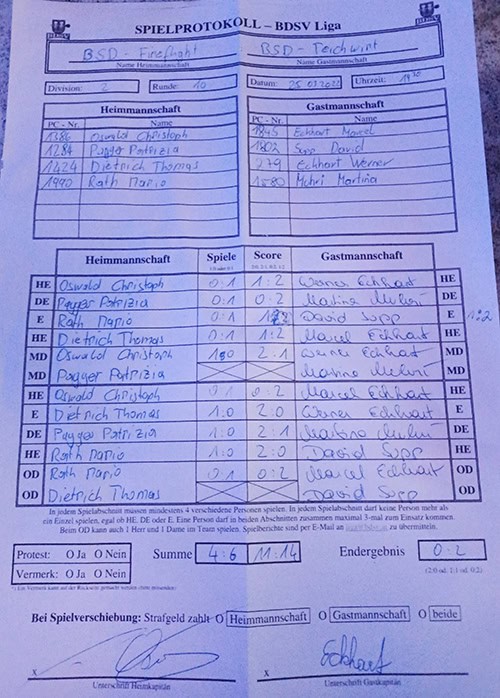 SPIELPROTOKOLL – BDSV Liga
BSD - Firefight BSD - Teichwirt
Name Heimmannschaft Name Gastmannschaft
Division: 2 Runde: 10 Datum: 25.03.2022 Uhrzeit: 19
Heimmannschaft Gastmannschaft
PC - Nr. Name PC - Nr. Name
1386 Oswald Christoph 1845 Eckhart Marcel
1284 Pagger Patrizia 1802 Sopp David
1424 Dietrich Thomas 279 Eckhart Werner
1990 Rath Mario 1580 Muhri Martina
Heimmannschaft Spiele Score Gastmannschaft
HE Oswald Christoph 0:1 1:2 Werner Eckhart HE
DE Pagger Patrizia 0:1 0:2 Martina Muhri DE
E Rath Mario 0:1 David Sopp E 1:2
HE Dietrich Thomas 0:1 1:2 Marcel Eckhart HE
MD Oswald Christoph 1:0 2:1 Werner Eckhart MD
MD Pagger Patrizia Martina Muhri MD
HE Oswald Christoph 0:1 0:2 Marcel Eckhart HE
E Dietrich Thomas 1:0 2:0 Werner Eckhart E
DE Pagger Patrizia 1:0 2:1 Martina Muhri DE
HE Rath Mario 1:0 2:0 David Sopp HE
OD Rath Mario 0:1 0:2 Marcel Eckhart OD
OD Dietrich Thomas David Sopp OD
In jedem Spielabschnitt müssen mindestens 4 verschiedene Personen spielen. In jedem Spielabschnitt darf keine Person mehr als
ein Einzel spielen, egal ob HE, DE oder E. Eine Person darf in beiden Abschnitten zusammen maximal 3-mal zum Einsatz kommen.
Beim OD kann auch 1 Herr und 1 Dame im Team spielen. Spielberichte sind per E-Mail an zu übermitteln.
Protest: O Ja O Nein Summe 4:6 11:14 Endergebnis 0:2
Vermerk: O Ja O Nein (2:0 od. 1:1 od. 0:2)
Bei Spielverschiebung: Strafgeld zahlt O Heimmannschaft O Gastmannschaft O beide
x x Eckhart
Unterschrift Heimkapitän Unterschrift Gastkapitän